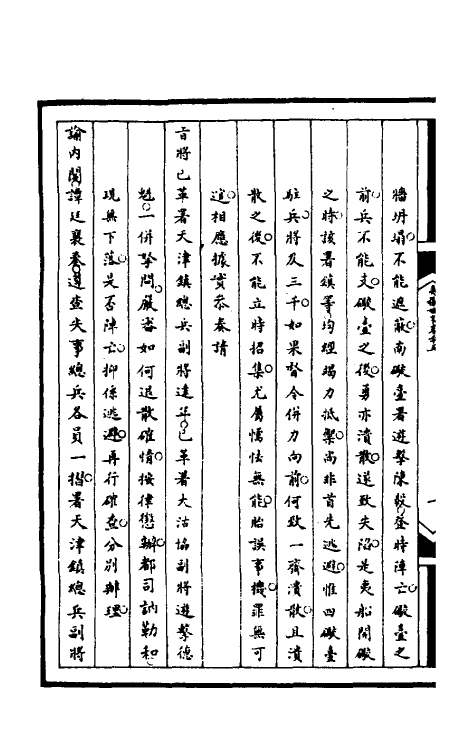 牆坍塌不能遮蔽南礮臺署遊擊陳毅登時陣亡礮臺之
前兵不能支礮臺之後勇亦潰散遂致失陷是夷船開礮
之時該署鎮等均經竭力抵禦尚非首先逃避惟四礮臺
駐兵將及三千如果督令併力向前何致一齊潰散且潰
散之後不能立時招集尤屬懦怯無能貽誤事機罪無可
逭相應據實叅奏請
旨將已革署天津鎮總兵副將達年已革署大沽協副將遊擊德
魁一併拏問嚴審如何退散確情按律懲辦都司訥勒和
現無下落是否陣亡抑係逃避再行確查分別辦理
諭內閣譚廷襄奏遵查失事總兵各員一摺署天津鎮總兵副將